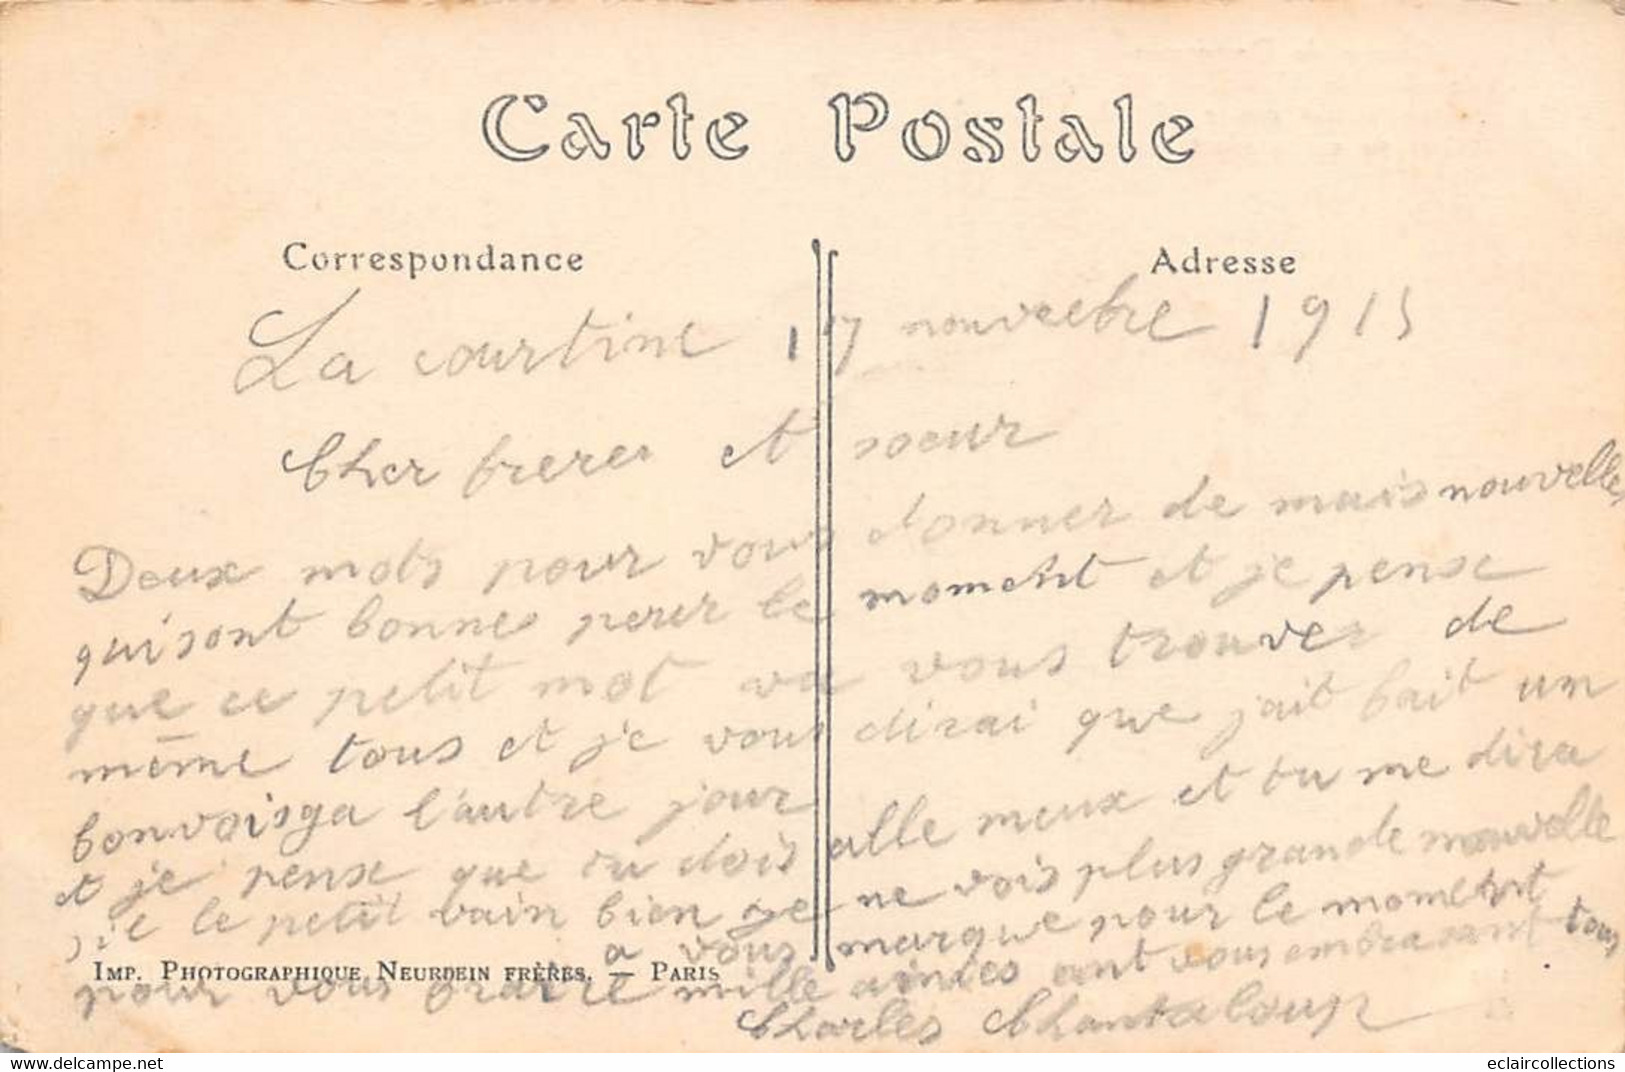 Carte Postale
Correspondance
Adresse
La courtine 17 nouvembre 1915
Cher freres et soeur
Deux mots pour vous donner de mais nouvelles
qui sont bonnes pour le moment et je pense
que ce petit mot va vous trouver de
même tous et je vous dirai que jait fait un
bon voisga l'autre jour
et je pense que tu dois alle meux et tu me dira
si le petit vain bien je ne vois plus grande nouvelle
a vous marque pour le moment
pour vous mille amties ant vous embrasant tous
Charles Chantaloup
IMP. PHOTOGRAPHIQUE NEURDEIN FRÈRES. — PARIS
eclaircollections